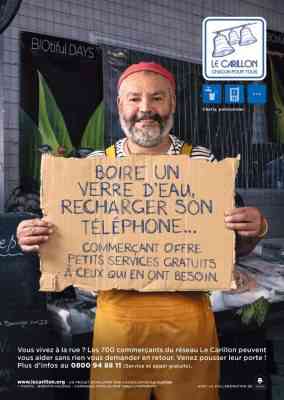 BIOtiful DAYS
LE CARILLON
CHACUN POUR TOUS
BOIRE UN
VERRE D'EAU,
RECHARGER SON
TÉLÉPHONE...
COMMERÇANT OFFRE
PETITS SERVICES GRATUITS
À CEUX QUI EN ONT BESOIN.
Vous vivez à la rue ? Les 700 commerçants du réseau Le Carillon peuvent
vous aider sans rien vous demander en retour. Venez pousser leur porte !
Plus d'infos au 0800 94 88 11 (Service et appel gratuits).
www.lecarillon.org